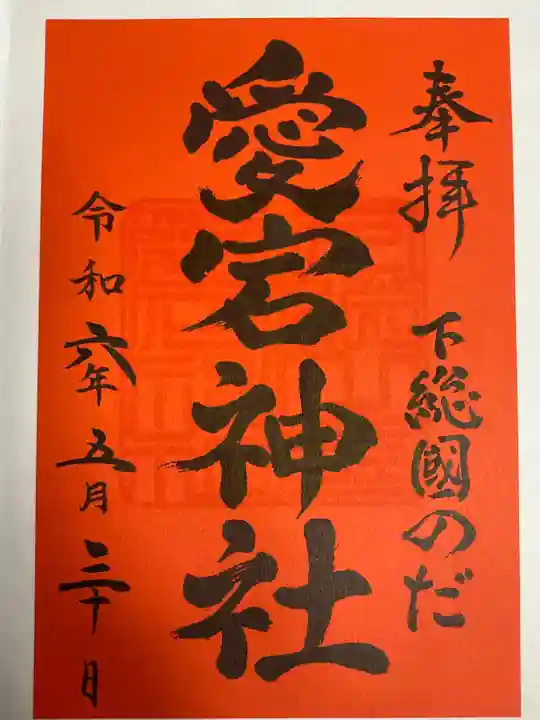 奉拝 下総國のだ
愛宕神社
令和六年五月三十日